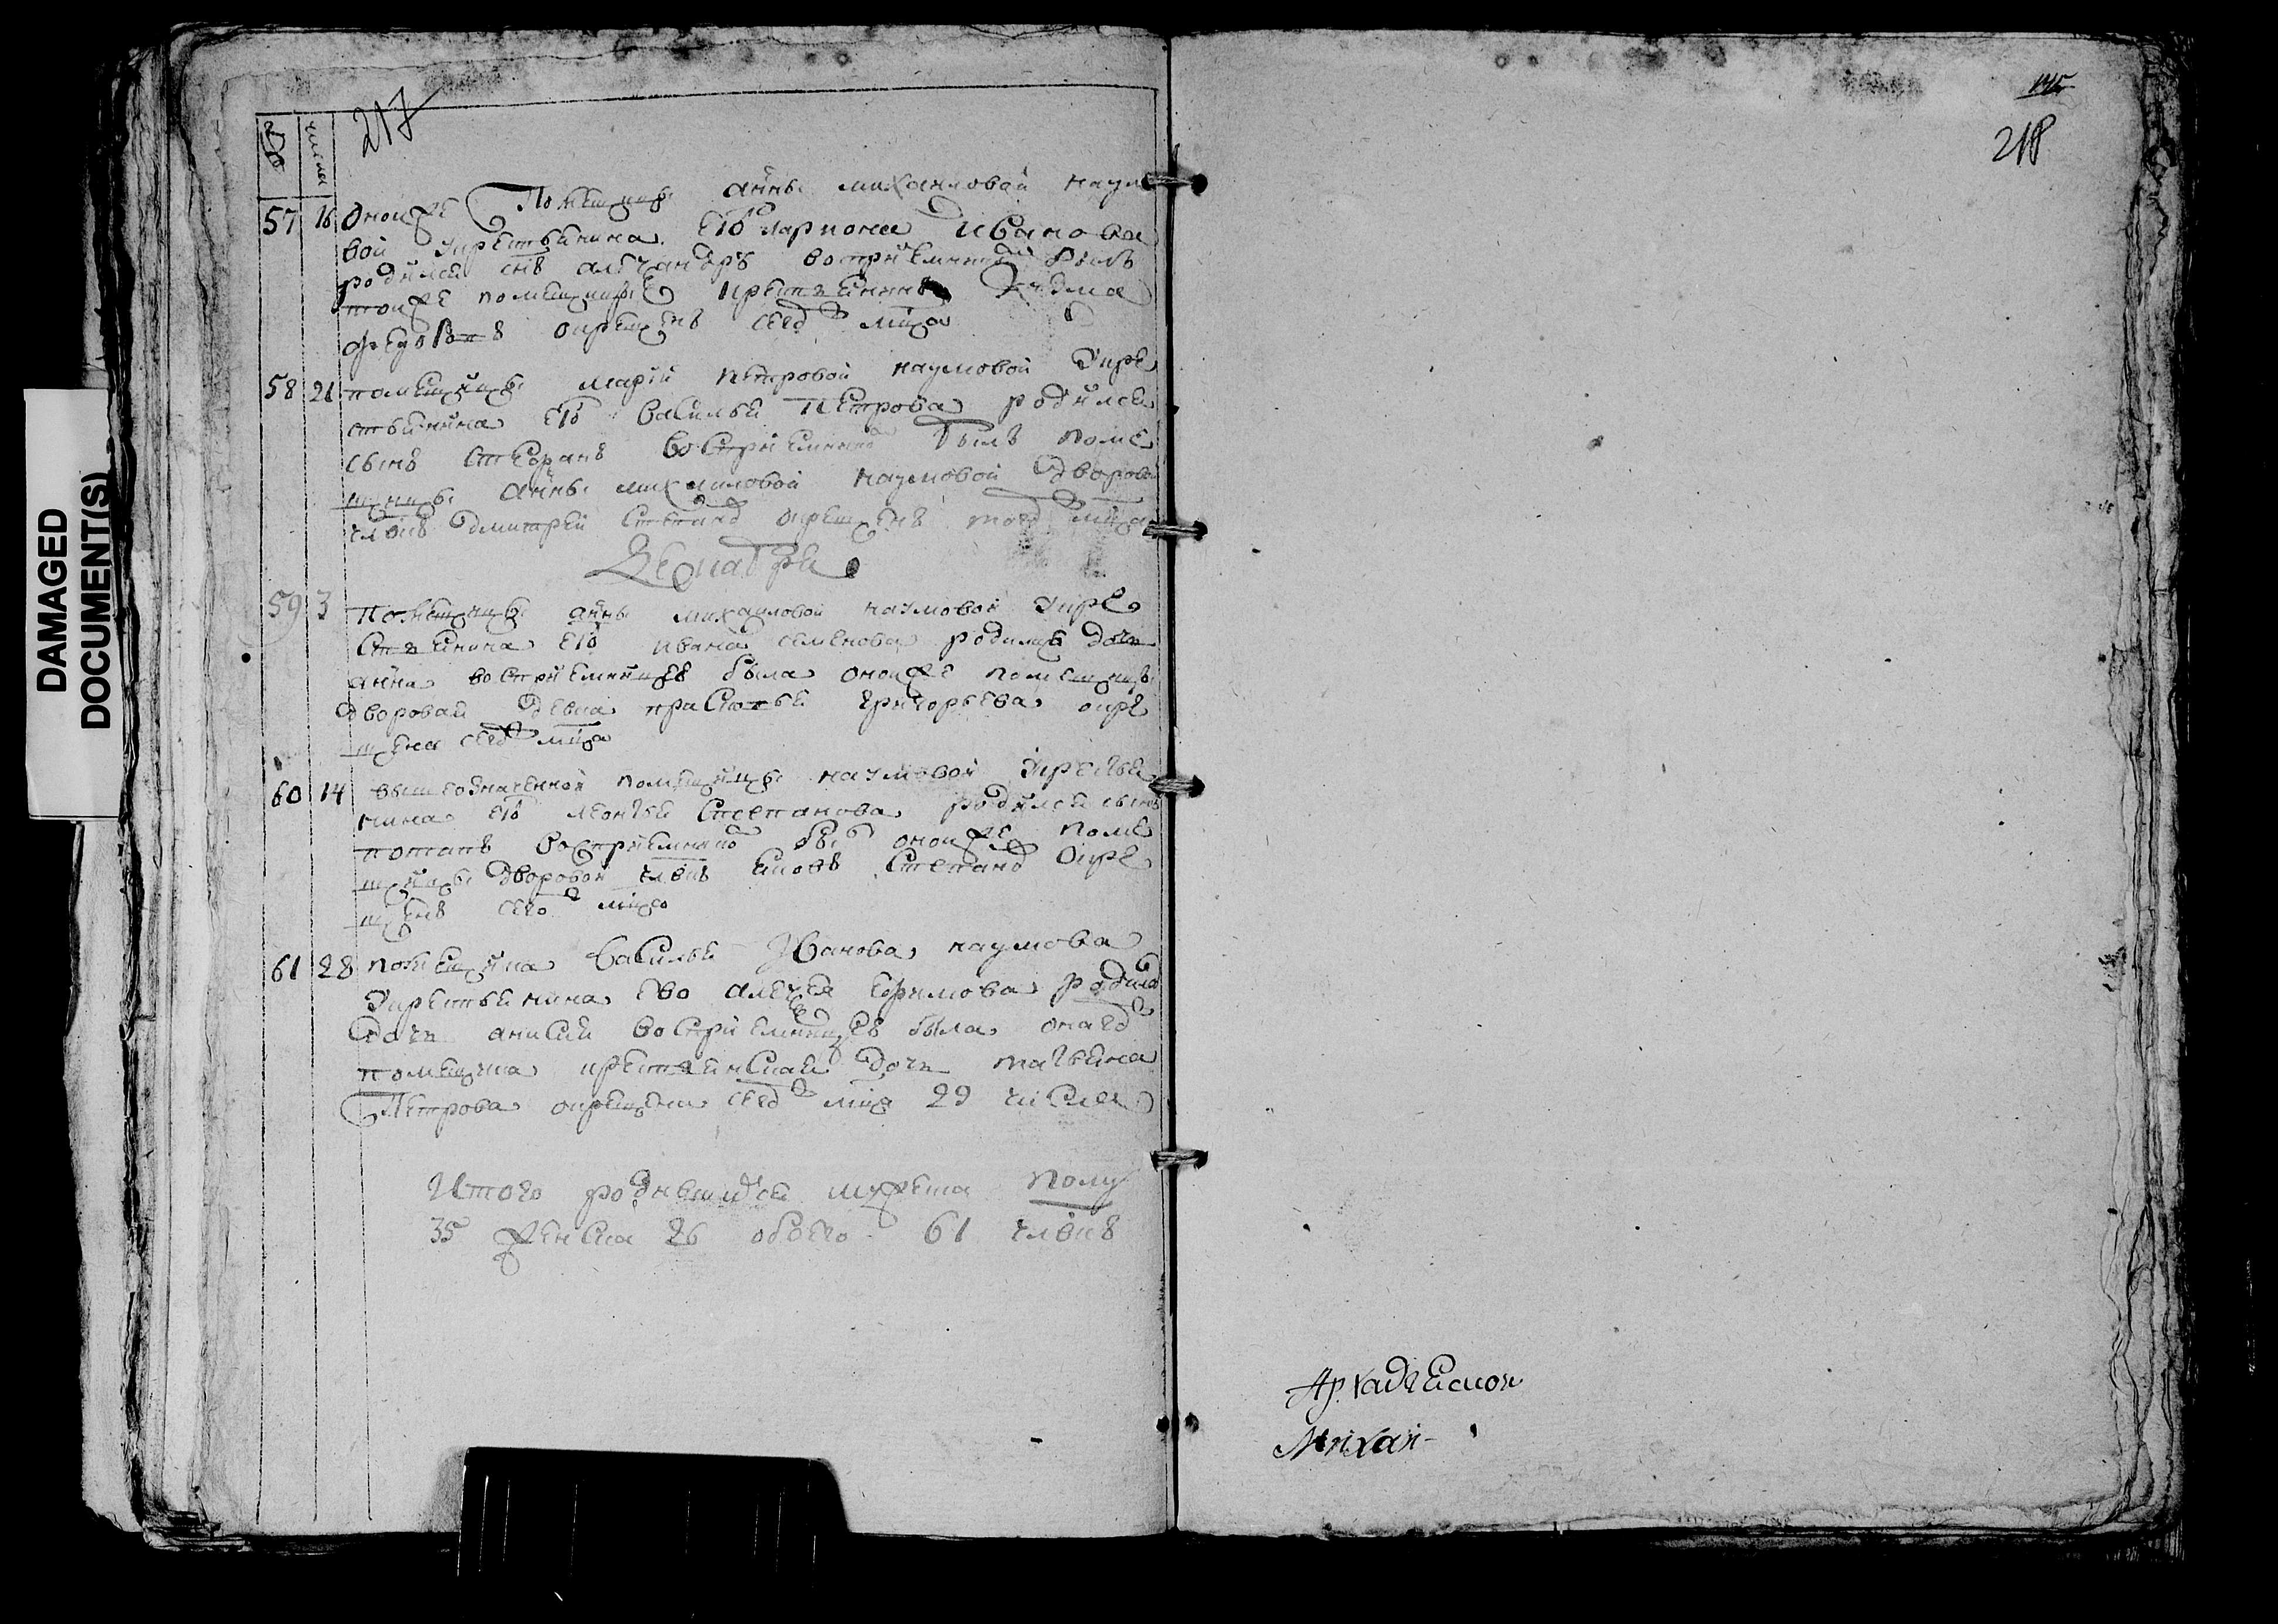 217
№ числа
57 16 Оной же Помещицы анны михаиловой наумо
вой укрестьянина ево лариона Иванова
родился снъ алеѯандръ восприемникомъ былъ
тои же помещицы крестьянинъ Козма
крещенъ сегожъ мца
58 21 помещицы марiи петровой наумовой укре
стьянина ево василья Петрова родился
сынъ Стефанъ восприемникомъ былъ поме
щицы анны михаиловой наумовой дворовой
члвкъ дмитрей Степановъ крещенъ тогожъ мца
Декабря
59 3 Помещицы анны михаиловой наумовой укре
стьянина ево ивана семенова родилась дочь
анна восприемницею была оной же помещицы
дворовая девка прасковья григорьева кре
щена сегожъ мца
60 14 вышеозначенной помещицы наумовой укрестья
нина ево леонтья Степанова родился сынъ
потапъ восприемникомъ бы оной же поме
щицы дворовой члвкъ Степановъ кре
щенъ сегожъ мца
61 28 помещика василья Иванова наумова
укрестьянина ево алеѯея ефимова родилась
дочь анисия восприемницею была оногожъ
помещика крестьянская дочь татьяна
Петрова крещена сегожъ мца 29 числа
Итого родившихся мужеска полу
35 женска 26 обоего 61 члвкъ
145
218
Михаи
DAMAGED
DOCUMENT(S)